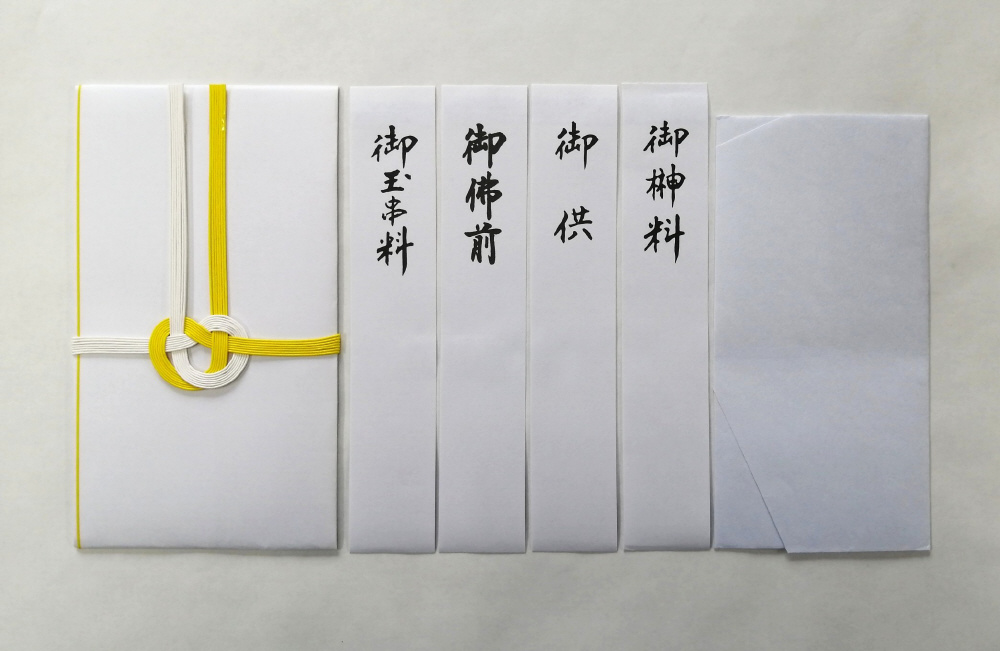 御玉串料
御佛前
御供
御榊料